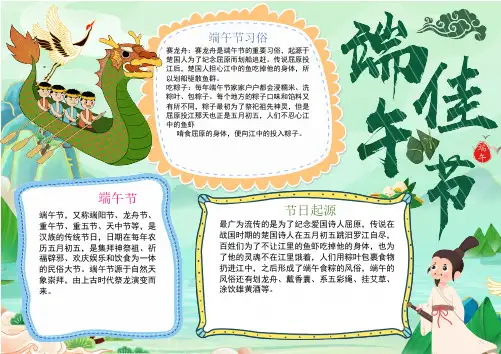 端午佳节
端午
端午节习俗
赛龙舟：赛龙舟是端午节的重要习俗，起源于
楚国人为了纪念屈原而划船追赶。传说屈原投
江后，楚国人担心江中的鱼吃掉他的身体，所
以划船驱散鱼群。
吃粽子：每年端午节家家户户都会浸糯米、洗
粽叶、包粽子。每个地方的粽子口味和馅料又
有所不同。粽子最初为了祭祀祖先神灵，但是
屈原投江那天也正是五月初五，人们不忍心江
中的鱼虾
啃食屈原的身体，便向江中的投入粽子。
端午节
端午节，又称端阳节、龙舟节、
重午节、重五节、天中节等，是
汉族的传统节日，日期在每年农
历五月初五，是集拜神祭祖、祈
福辟邪、欢庆娱乐和饮食为一体
的民俗大节。端午节源于自然天
象崇拜，由上古时代祭龙演变而
来。
节日起源
最广为流传的是为了纪念爱国诗人屈原。传说在
战国时期的楚国诗人在五月初五跳汨罗江自尽，
百姓们为了不让江里的鱼虾吃掉他的身体，也为
了他的灵魂不在江里饿着，人们用粽叶包裹食物
扔进江中，之后形成了端午食粽的风俗，端午的
风俗还有划龙舟、戴香囊、系五彩绳、挂艾草、
涂饮雄黄酒等。